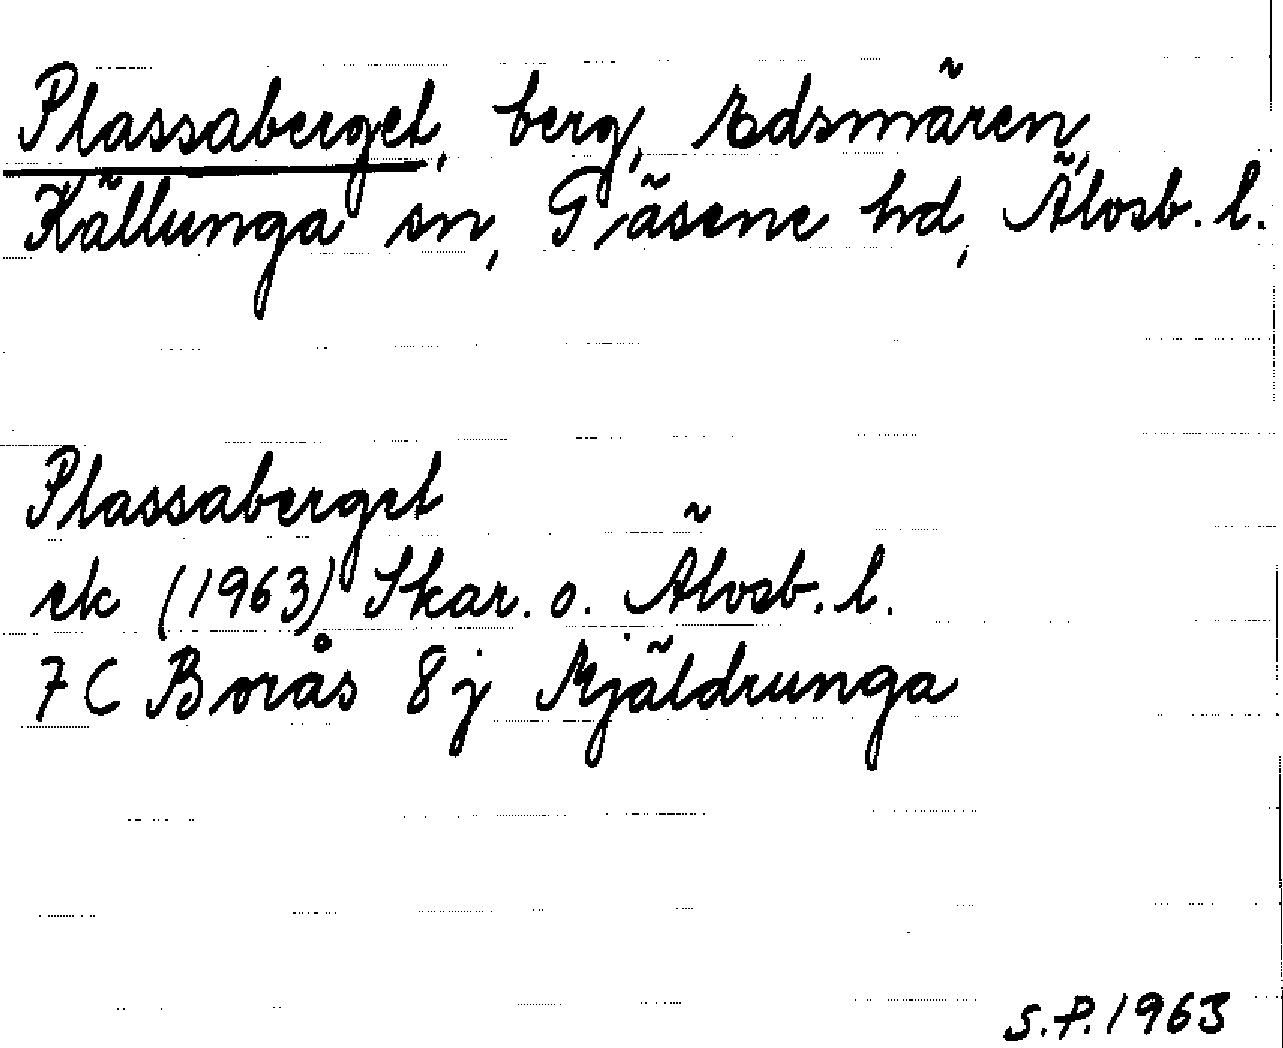 Plassaberget, berg, Edsmären,
Källunga sn, Gäsene hd, Älvsb. l.
Plassaberget
ek (1963) Skar. o. Älvsb. l.
7C Borås 8j Mjäldrunga
S.P. 1963